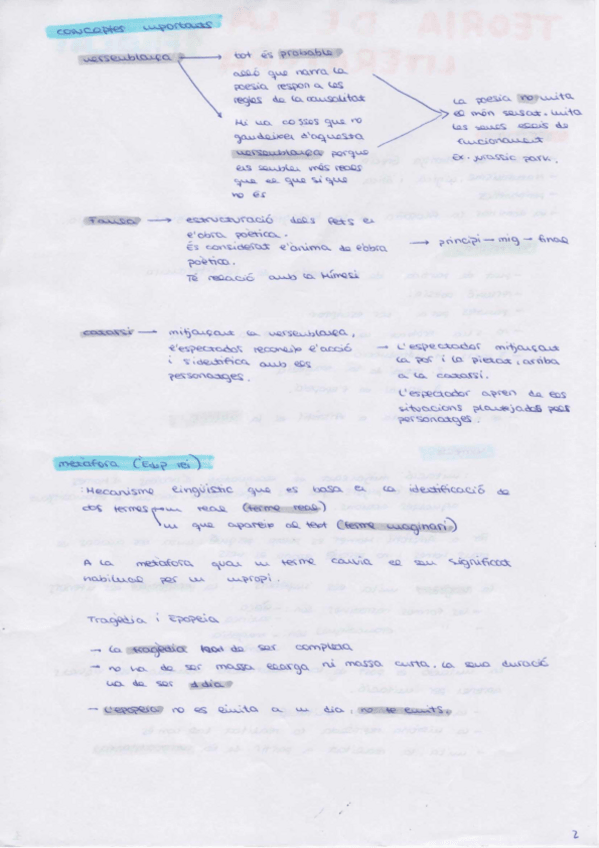 conceptes importants
versemblança → tot és probable
allò que narra la
poesia respon a les
regles de la causalitat
Hi ha coses que no
gaudeixen d'aquesta
versemblança perque
ens semblen més reals
que el que si que
no és
La poesia no imita
el món sensat, imita
les seues lleis de
funcionament
Ex. Jurassic park.
Faula → estructuració dels fets en
l'obra poètica.
És considerat l'ànima de l'obra
poètica.
Té relació amb la Mímesi
→ principi — mig — final
catarsi → mitjançant la versemblança,
l'espectador reconeix l'acció
i s'identifica amb els
personatges.
→ L'espectador mitjançant
la por i la pietat, arriba
a la catarsi.
L'espectador apren de les
situacions plantejades pels
personatges.
metàfora (Edip rei)
Mecanisme lingüístic que es basa en la identificació de
dos termes un real (terme real)
un que apareix al text (terme imaginari)
A la metàfora quan un terme canvia el seu significat
habitual per un impropi.
Tragèdia i Epopeia
→ La tragèdia ha de ser completa
→ no ha de ser massa llarga ni massa curta. La seua duració
ha de ser 1 dia
→ L'epopeia no es limita a un dia, no té límits.
2